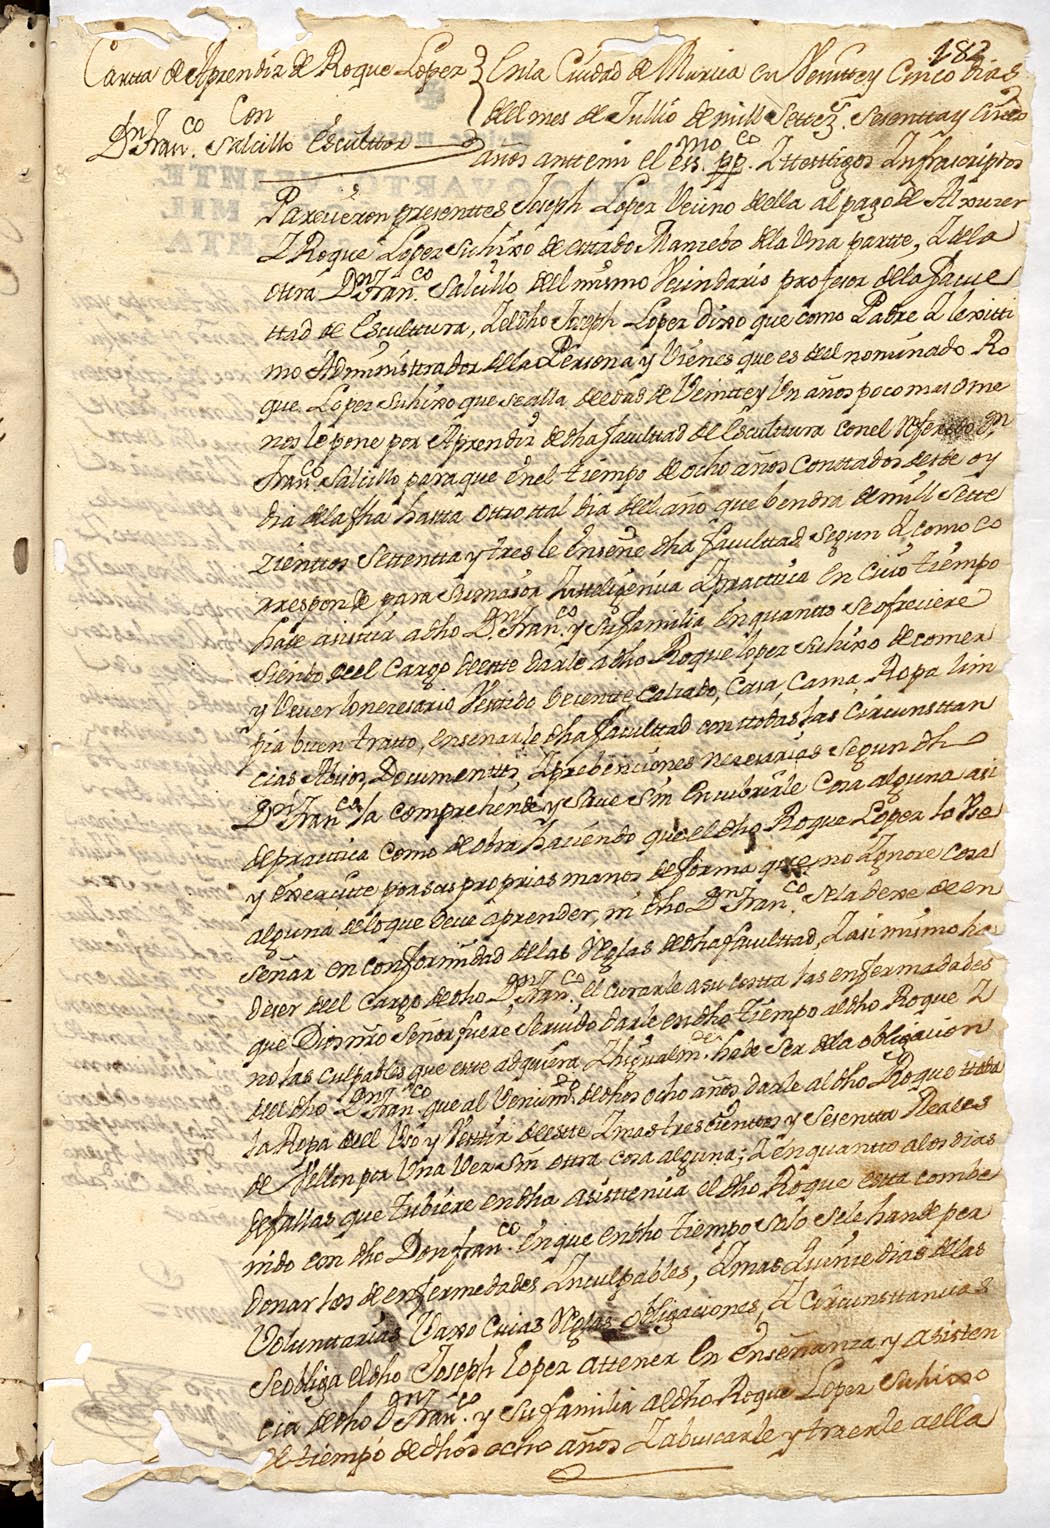 182
Cartta de Aprendiz de Roque Lopez
Con
Dn Franco. Salcillo Escultor
En la Ciudad de Murcia en Veintte y Cinco dias
del mes de Jullio de mill Settez. Sesentta y Cinco
años antte mi el essmo. ppco. Y ttesttigos Ynfrascriptos
Parecieron presenttes Joseph Lopez Vecino della al pago de Alxucer
Y Roque Lopez Su hixo de esttado Mancebo de la Una partte, Y de la
ottra Dn Franco. Salcillo del mismo Vecindario profesor de la facul
ttad de Escultura, Y el dho Joseph Lopez dixo que como Padre Y lexitti
mo Administtrador de la Persona y Vienes que es del nominado Ro
que Lopez Su hixo que se alla de edad de Veintte y Un años poco mas o me
nos le pone por Aprendiz de dha facultad de Esculttura con el Referido Dn
Franco. Salcillo para que en el tiempo de ocho años Conttados desde oy
dia de la fha hastta ottro tal dia del año que bendra de mill Sette
zientos Settentta y tres le Enseñe dha facultad Segun Y como co
rresponde para Su maior Ynteligencia Y practtica en Cuio tiempo
ha de asistir a dho Dn Franco. y Su familia En quantto Se ofreciere
Siendo de el Cargo de estte darle a dho Roque Lopez Su hixo de comer
y Vever lo necesario Vestido Decentte Calzado, Casa, Cama, Ropa lim
pia buen tratto, enseñarle dha facultad con ttodas las Circunsttan
cias Abios, Documenttos, Y prebenciones necesarias Segun dho
Dn Franco. la comprehende y Save Sin Encubrirle Cosa alguna asi
de practtica como de obra haciendo que el dho Roque Lopez lo Vse
y Execute por sus proprias manos de forma que no Ygnore Cosa
alguna de lo que Deve aprender, ni dho Dn Franco. Se la dexe de en
señar en conformidad de las Reglas de dha facultad, Y asi mismo ha
de ser del Cargo de dho Dn Franco. el curarle a su costta las enfermedades
que Dios nro Señor fuere Servido darle en dho tiempo al dho Roque Y
no las culpables que estte adquiera Y higualmte. ha de Ser de la obligacion
del dho Dn Franco. que al Vencimto. de dhos ocho años darle al dho Roque ttoda
la Ropa de el Vso y Vesttir de estte Y mas trescienttos y Sesentta Reales
de Vellon por Una Vez Sin ottra cosa alguna; Y en quantto a los dias
de fallas que tubiere en dha asisttencia el dho Roque estta combe
nido con dho Don Franco. En que en dho tiempo Solo Se le han de per
donar los de enfermedades Ynculpables, Y mas Quince dias de las
Voluntarias Vaxo cuias Reglas obligaciones, Y circunsttancias
Se obliga el dho Joseph Lopez a ttener En Enseñanza y asisten
cia de dho Dn Franco. y Su familia al dho Roque Lopez Su hixo
El tiempo de dhos ocho años Y a buscarle y traerle a ella